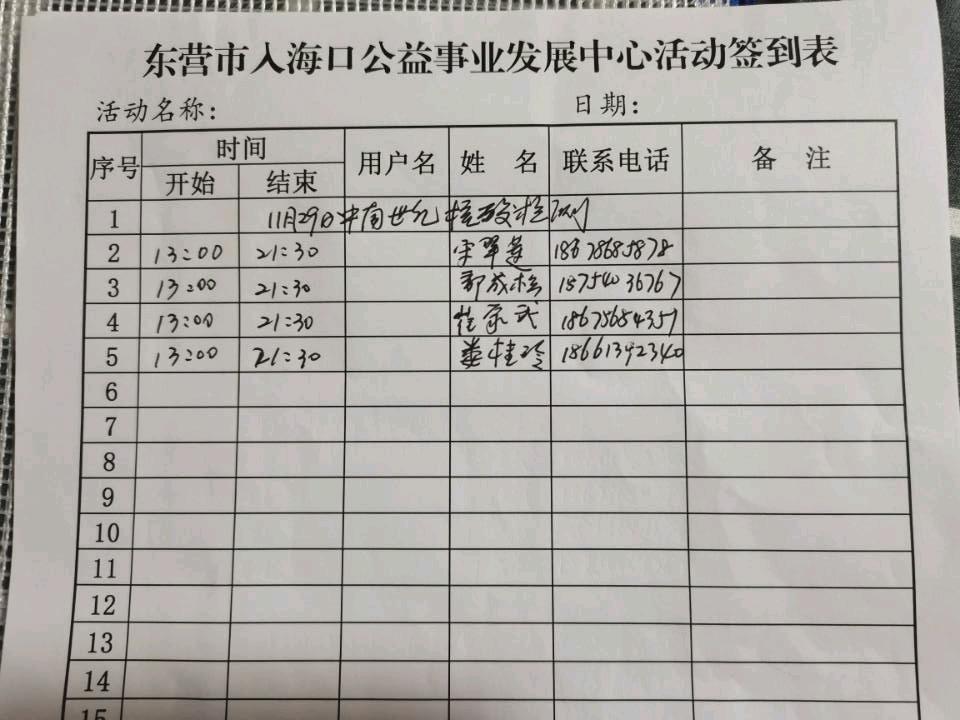 东营市入海口公益事业发展中心活动签到表
活动名称: 日期:
序号 时间 用户名 姓 名 联系电话 备 注
开始 结束
1 11月29日中南世纪核酸检测
2 13:00 21:30 宋翠莲 18678685878
3 13:00 21:30 郭成松 18754036767
4 13:00 21:30 崔承武 18678684357
5 13:00 21:30 娄桂玲 18661392340
6
7
8
9
10
11
12
13
14
15